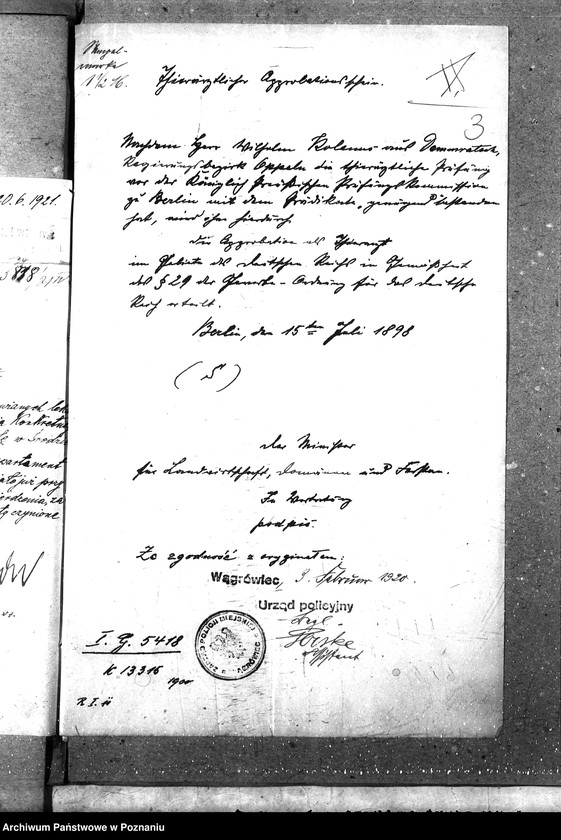 Stempel-
marke
1 1/2 M.
Thierärztlicher Approbationsschein.
II.
3
Nachdem Herr Wilhelm Kolanus aus
Regierungsbezirk Oppeln die thierärztliche Prüfung
vor der Königlich Preußischen Prüfungskommission
zu Berlin mit dem Prädikate „genügend" bestanden
hat, wird ihm hierdurch
die Approbation als Thierarzt
im Gebiete des deutschen Reichs in Gemäßheit
des § 29 der Gewerbe-Ordnung für das deutsche
Reich erteilt.
Berlin, den 15ten Juli 1898
(S)
Der Minister
für Landwirtschaft, Domänen und Forsten.
In Vertretung
podpis.
Za zgodność z oryginałem:
Wągrówiec, 9. Februar 1920.
Urząd policyjny
I. G. 5418
K 13316
1900
R I. 11
20.6.1921.
w środzie
Archiwum Państwowe w Poznaniu